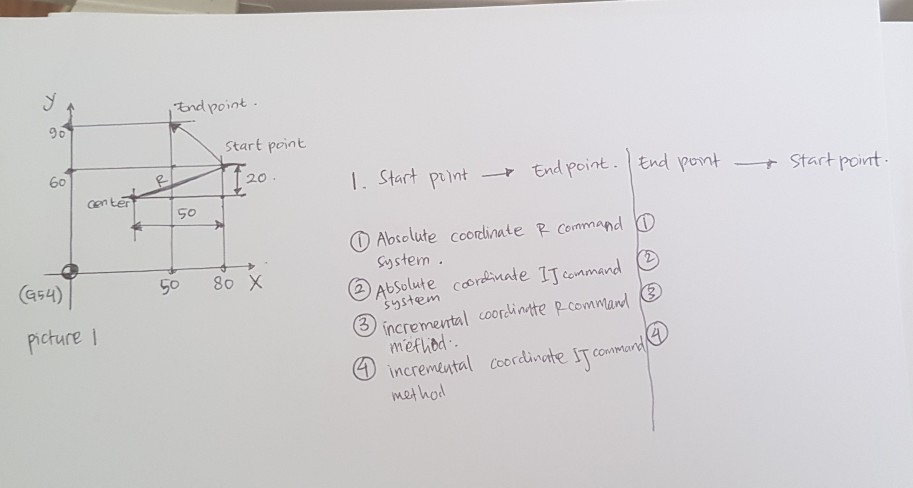 y
End point.
90
Start point
60
R
20.
center
50
(G54)
50 80 X
picture 1
1. Start point → End point. End point → Start point.
① Absolute coordinate R command ①
system.
② Absolute coordinate IJ command ②
system
③ incremental coordinatte R command ③
method.
④ incremental coordinate IJ command ④
method